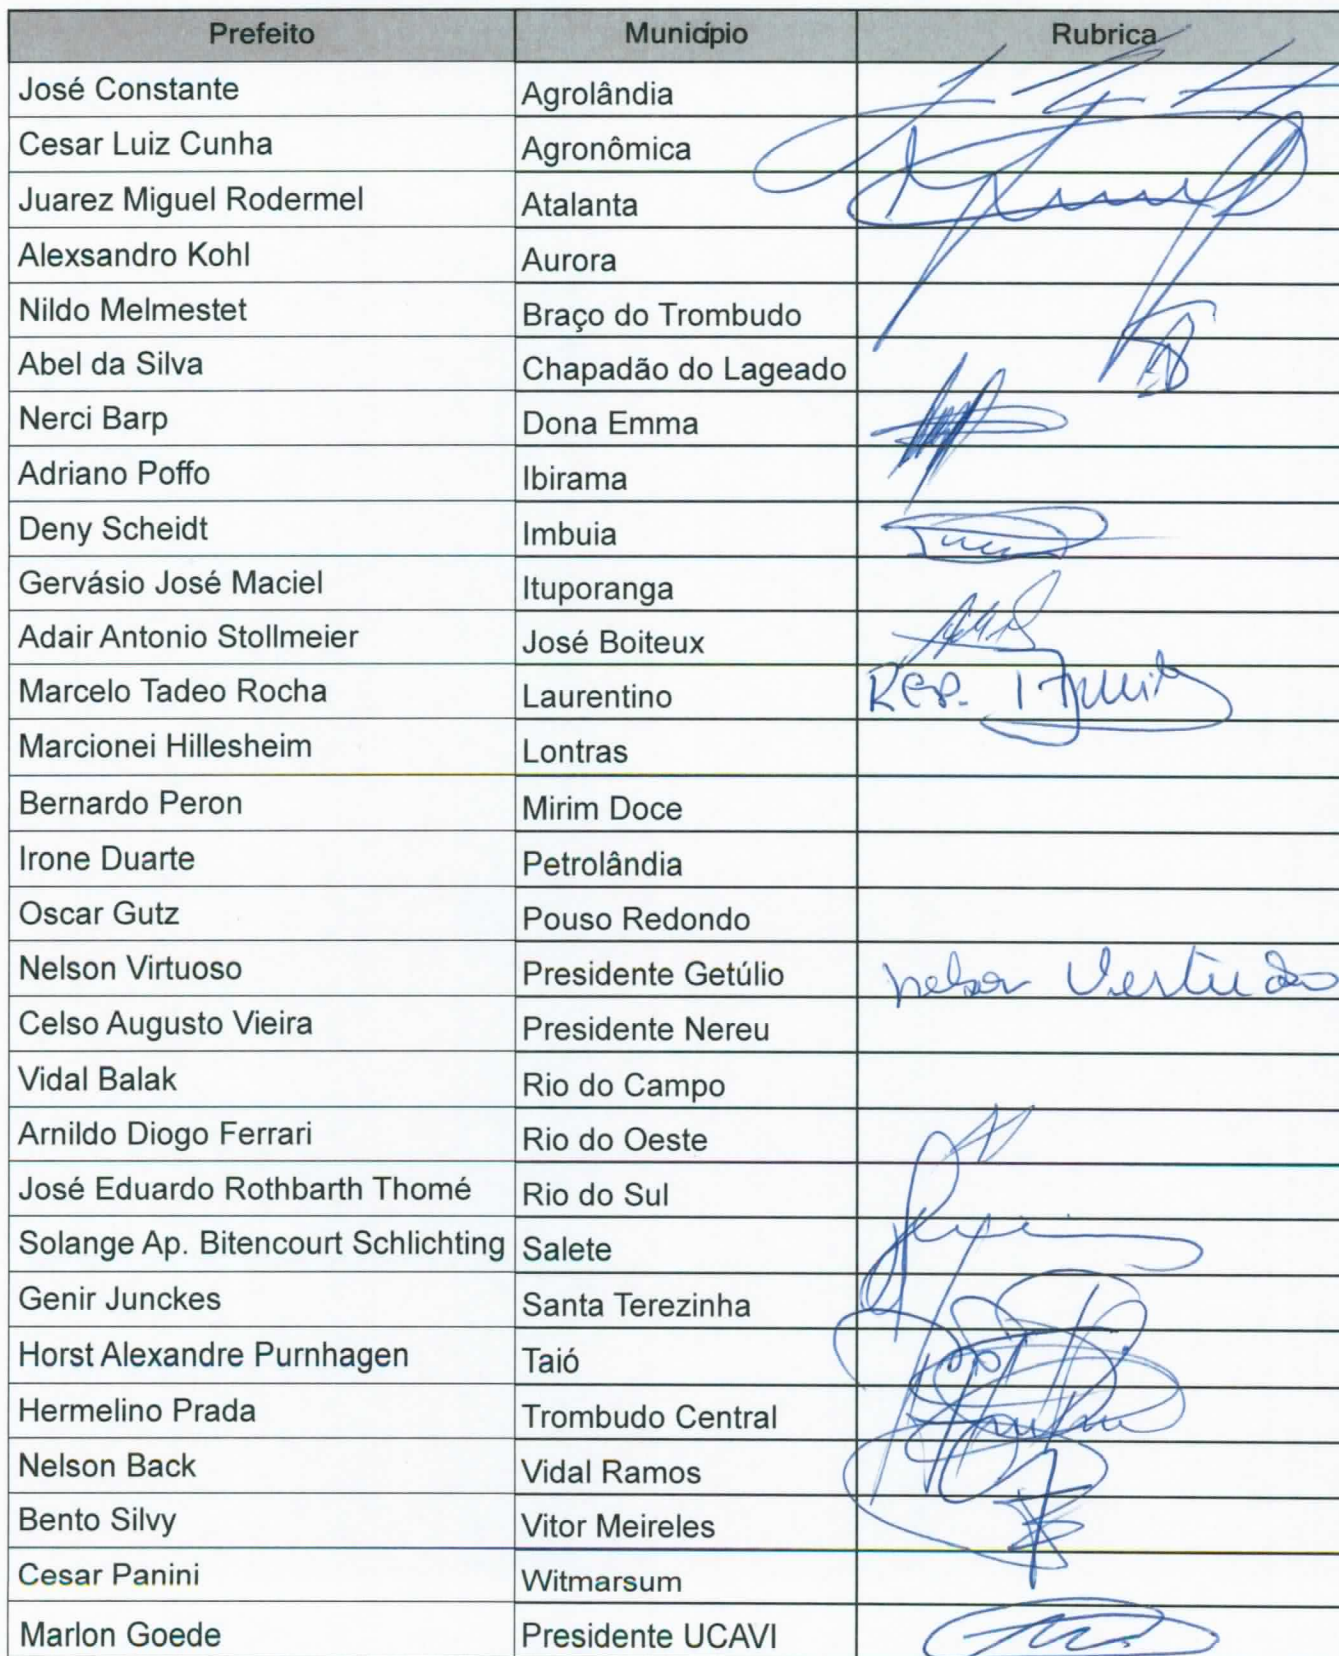 Prefeito Município Rubrica
José Constante Agrolândia
Cesar Luiz Cunha Agronômica
Juarez Miguel Rodermel Atalanta
Alexsandro Kohl Aurora
Nildo Melmestet Braço do Trombudo
Abel da Silva Chapadão do Lageado
Nerci Barp Dona Emma
Adriano Poffo Ibirama
Deny Scheidt Imbuia
Gervásio José Maciel Ituporanga
Adair Antonio Stollmeier José Boiteux
Marcelo Tadeo Rocha Laurentino Rep.
Marcionei Hillesheim Lontras
Bernardo Peron Mirim Doce
Irone Duarte Petrolândia
Oscar Gutz Pouso Redondo
Nelson Virtuoso Presidente Getúlio
Celso Augusto Vieira Presidente Nereu
Vidal Balak Rio do Campo
Arnildo Diogo Ferrari Rio do Oeste
José Eduardo Rothbarth Thomé Rio do Sul
Solange Ap. Bitencourt Schlichting Salete
Genir Junckes Santa Terezinha
Horst Alexandre Purnhagen Taió
Hermelino Prada Trombudo Central
Nelson Back Vidal Ramos
Bento Silvy Vitor Meireles
Cesar Panini Witmarsum
Marlon Goede Presidente UCAVI